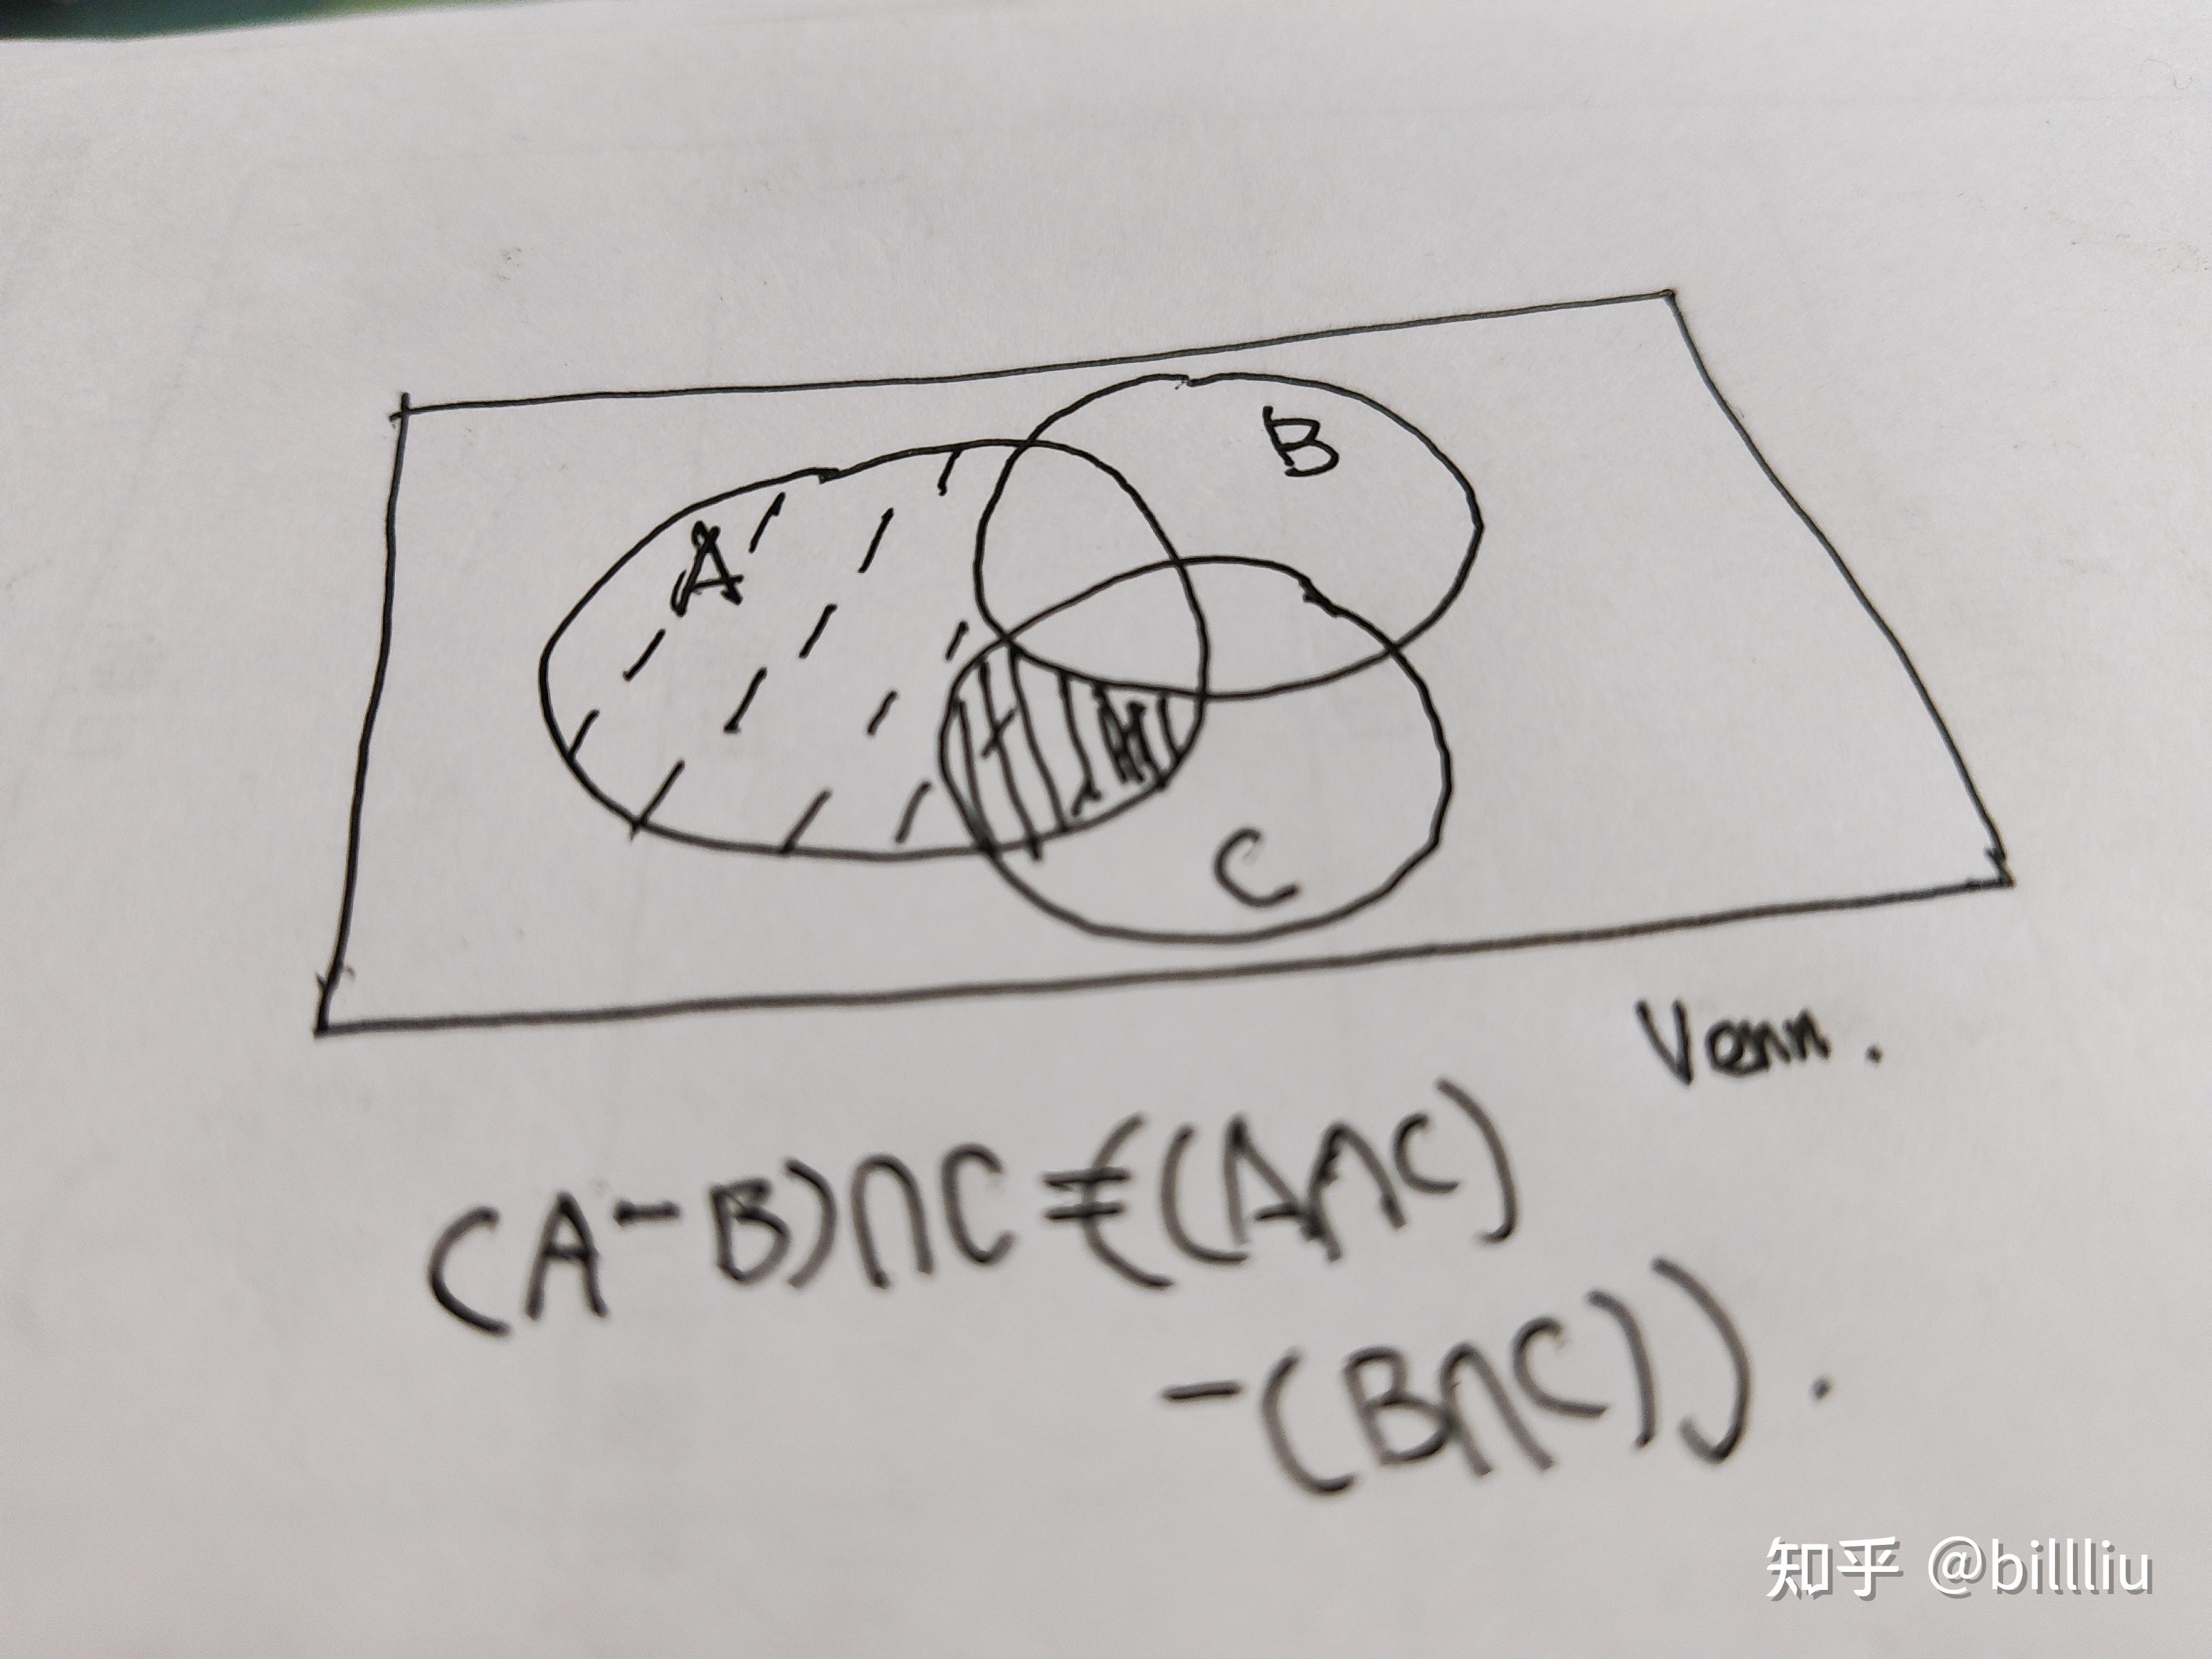 A
B
C
Venn.
(A-B)∩C=((A∩C)
-(B∩C)).
知乎 @billliu